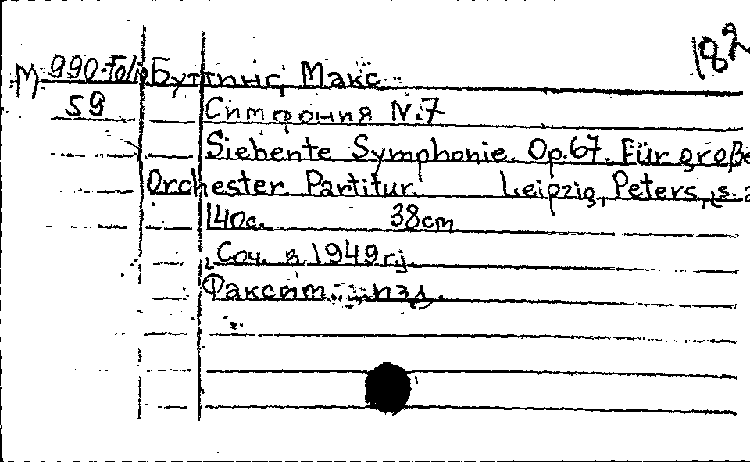 182
М 990-Folio Буттинг, Макс.
59 Симфония N.7
Siebente Symphonie. Op.67. Für große
Orchester. Partitur. Leipzig, Peters, s. a
140с. 38cm
Соч. в 1949г.
Факсим. изд.